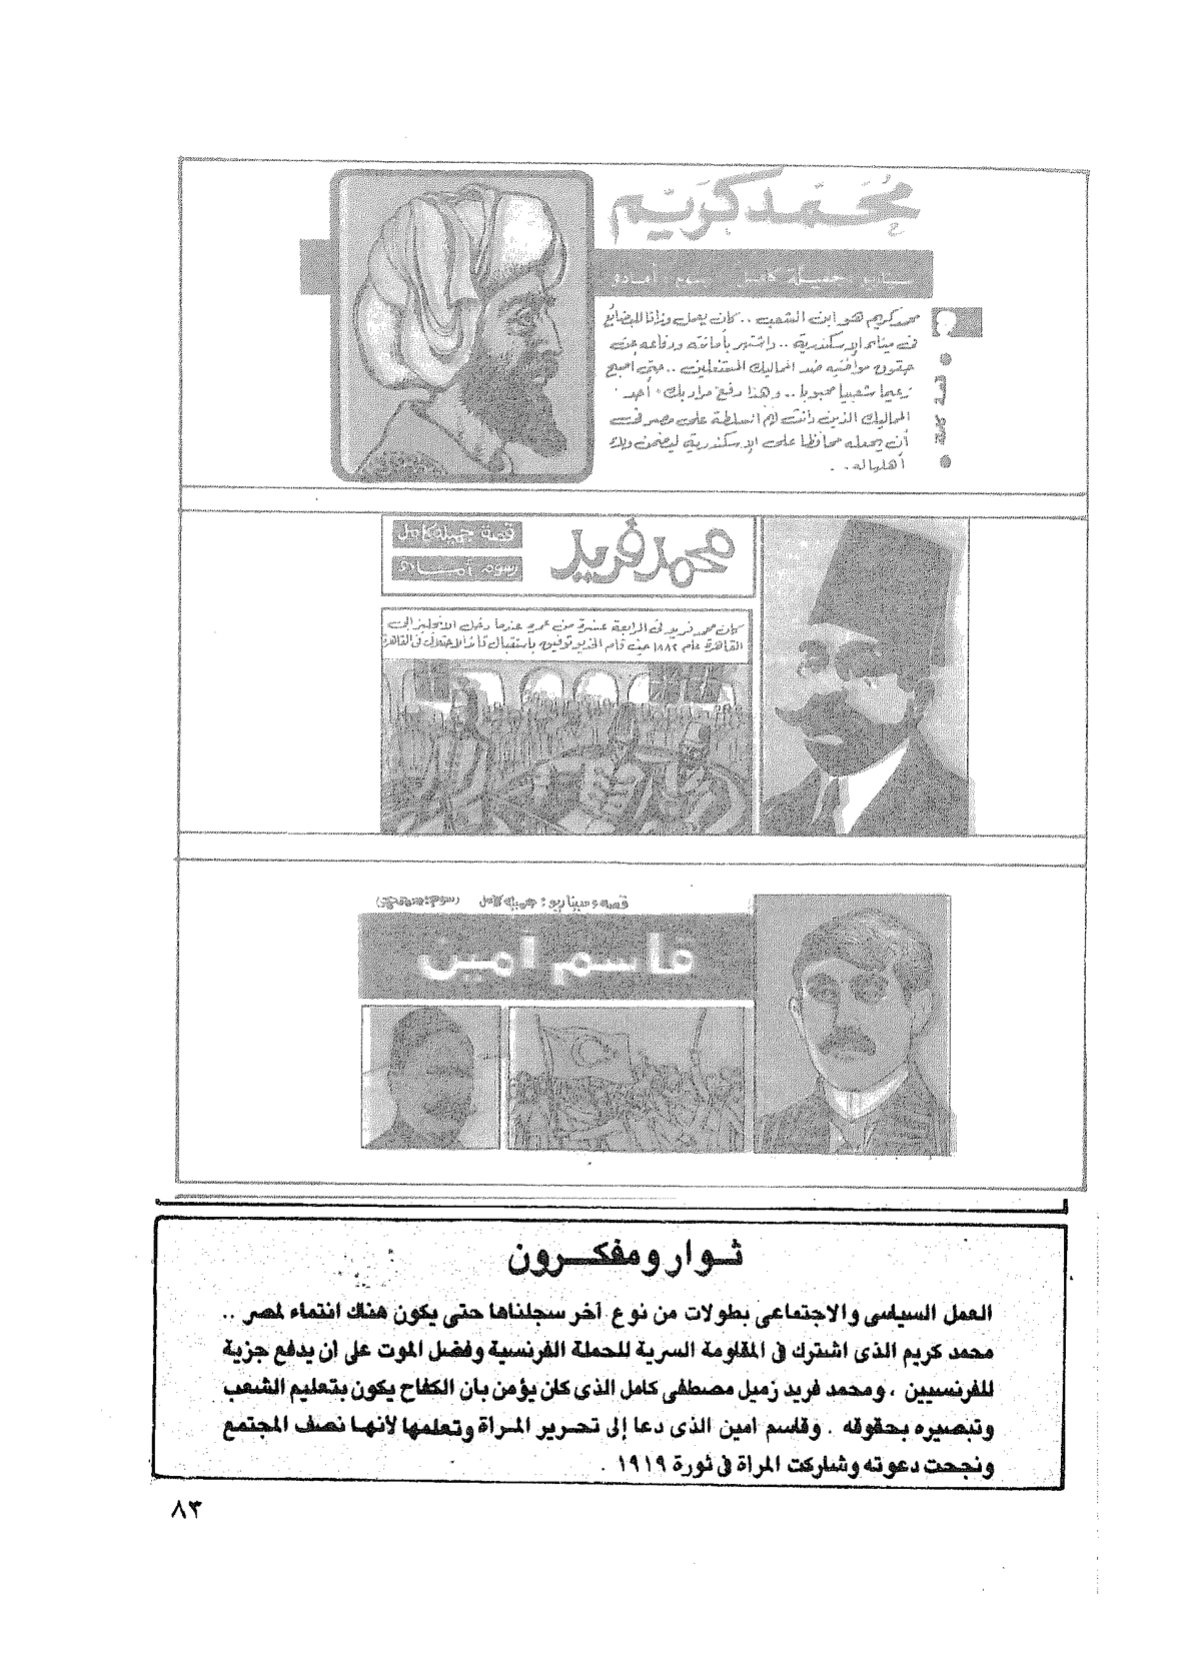 محمد كريم
سيناريو: جميلة كامل رسوم: أمادو
محمد كريم هو ابن الشعب .. كان يعمل وزانا للبضائع
فى ميناء الإسكندرية .. واشتهر بأمانته ودفاعه عن
حقوق مواطنيه ضد المماليك المستغلين .. حتى أصبح
زعيما شعبيا محبوبا .. وهذا دفع مراد بك، أحد
المماليك الذين كانت لهم السلطة على مصر فى
أن يجعله محافظا على الإسكندرية ليضمن ولاء
أهلها له . .
قصة كاملة
محمد فريد
قصة جميلة كامل
رسوم
كان محمد فريد فى الرابعة عشرة من عمره عندما دخل الانجليز إلى
القاهرة عام ١٨٨٢ حيث قام الخديو توفيق باستقبال قائد الاحتلال فى القاهرة
قصة وسيناريو: جميلة كامل رسوم:
قاسم أمين
ثوار ومفكرون
العمل السياسى والاجتماعى بطولات من نوع آخر سجلناها حتى يكون هناك انتماء لمصر ..
محمد كريم الذى اشترك فى المقاومة السرية للحملة الفرنسية وفضل الموت على أن يدفع جزية
للفرنسيين ، ومحمد فريد زميل مصطفى كامل الذى كان يؤمن بأن الكفاح يكون بتعليم الشعب
وتبصيره بحقوقه . وقاسم امين الذى دعا إلى تحرير المرأة وتعلمها لأنها نصف المجتمع
ونجحت دعوته وشاركت المرأة فى ثورة ١٩١٩ .
٨٣